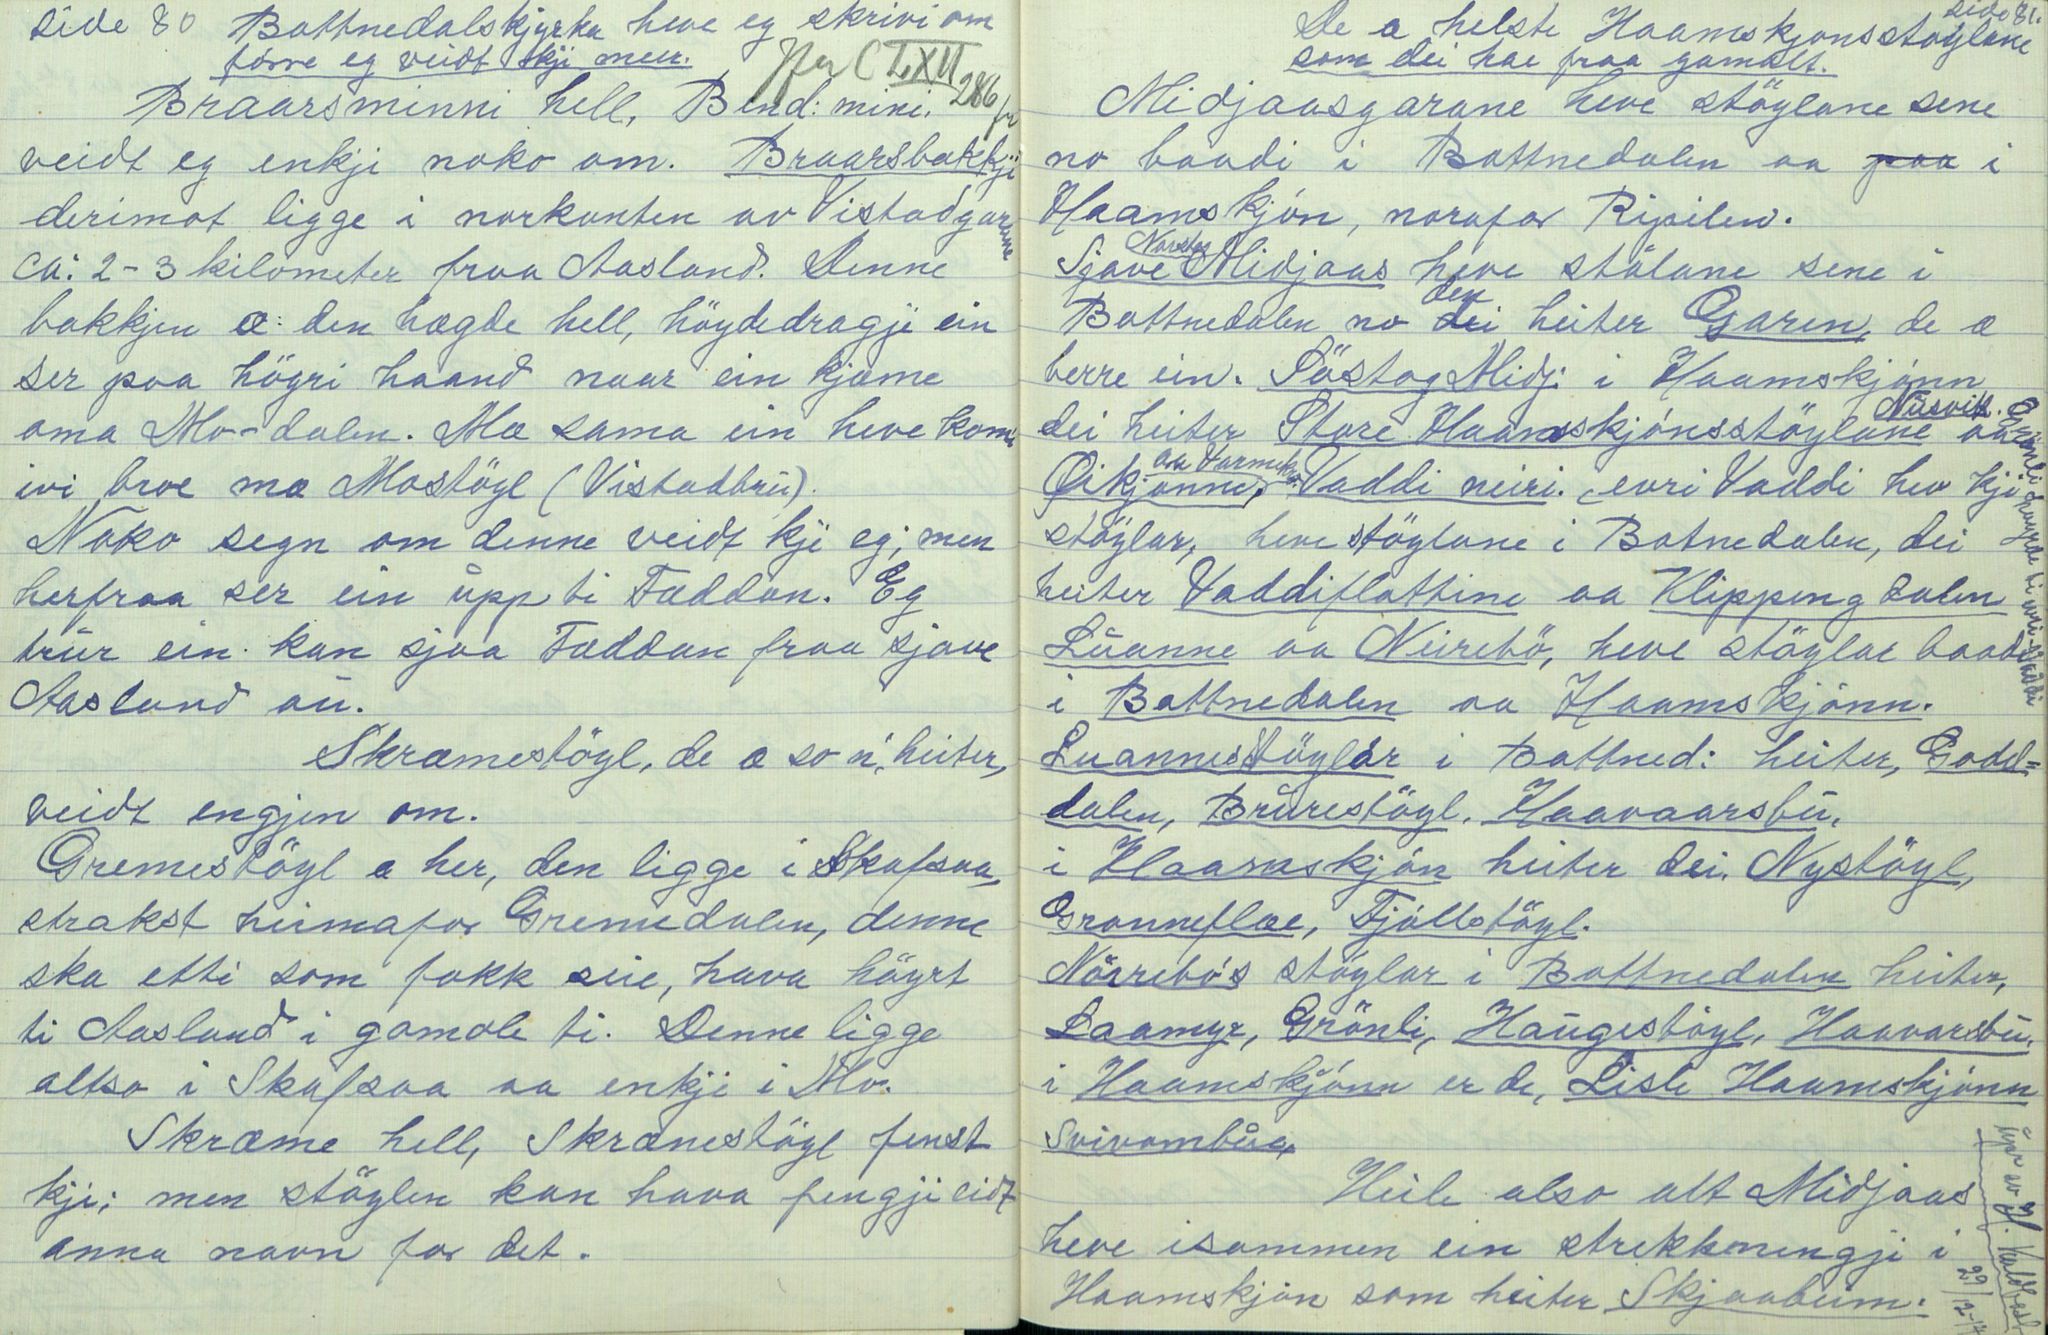 side 80 Battnedalskjyrka heve eg skrivi om
förre eg veidt kji meir.
Jfr C LXII 286 fr
Braarsminni hell, Bend: mini.
veidt eg enkji noko om. Braarsbakkji
derimot ligge i norkanten av Vistadgarane
ca: 2-3 kilometer fraa Aasland. Denne
bakkjen æ: den hægde hell, höydedragji ein
ser paa högri haand naar ein kjeme
oma Mo-dalen. Mæ sama ein heve komi
ivi broe mæ Mostöyl (Vistadbrü).
Noko segn om denne veidt kji eg, men
herfraa ser ein üpp ti Fæddan. Eg
trür ein kan sjaa Fæddan fraa sjave
Aasland aü.
Skræmestöyl, de æ so n' heiter,
veidt engjen om.
Gremestöyl æ her, den ligge i Skafsaa,
strakst heimafor Gremedalen, denne
ska etti som fokk seie, hava höyrt
ti Aasland i gamole ti. Denne ligge
altso i Skafsaa aa enkji i Mo.
Skræme hell, Skræmestöyl finst
kji; men stöylen kan hava fengji eidt
anna navn for det.

side 81.
De æ helste Haamskjønsstöylane
som dei har fraa gamalt.
Midjaasgarane heve stöylane sene
no baadi i Battnedalen aa paa i
Haamskjön, norafor Ripilen.
Sjave Norstog Midjaas heve stölane sene i
Battnedalen no den heiter Garen, de æ
berre ein. Söstog Midj: i Haamskjönn
dei heiter Store Haamsskjönsstöylane aa Nüsvit.
Øikjønne, aa Varme Vaddi neiri. evri Vaddi hev kji
stöylar, heve stöylane i Botnedalen, dei
heiter Vaddiflottine aa Klippeng dalen
Grönli höyrde ti evri-Vaddi
Lüanne aa Neirebö, heve stöylar baade
i Battnedalen aa Haamskjönn.
Luannestöylar i Battned: heiter, Godel=
dalen, Brürestöyl, Haavaarsbü,
i Haamskjön heiter dei. Nystöyl,
Gronneflæe, Fjøllstöyl.
Nörrebös stöylar i Battnedalen heiter,
Laamyr, Grönli, Haügestöyl, Haavarsbü,
i Haamskjönn er de, Lisle Haamskjönn
Svivambüa,
Heile also alt Midjaas
heve isammen ein strekkmengji i
Haamskjön som heiter Skjaabüm.
29/12-17